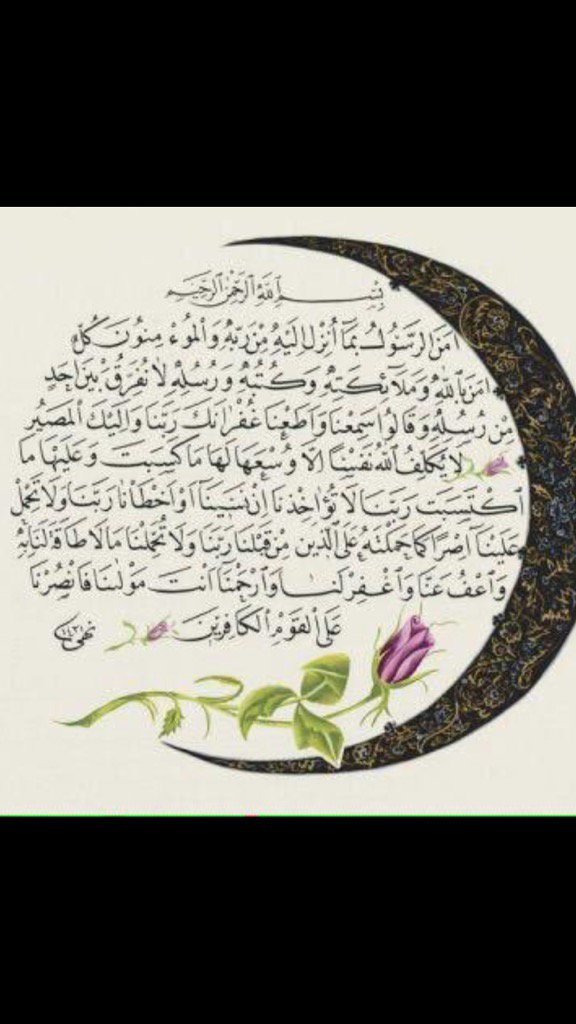 بِسْمِ ٱللَّهِ ٱلرَّحْمَٰنِ ٱلرَّحِيمِ
اٰمَنَ الرَّسُولُ بِمَٓا أُنْزِلَ اِلَيْهِ مِنْ رَبِّهٖ وَالْمُوءْمِنُونَ كُلٌّ
اٰمَنَ بِاللّٰهِ وَمَلَآئِكَتِهٖ وَكُتُبِهٖ وَرُسُلِهٖ لَا نُفَرِّقُ بَيْنَ اَحَدٍ
مِنْ رُسُلِهٖ وَقَالُوا سَمِعْنَا وَاَطَعْنَا غُفْرَانَكَ رَبَّنَا وَاِلَيْكَ الْمَصٖيرُ
لَا يُكَلِّفُ اللّٰهُ نَفْسًا اِلَّا وُسْعَهَا لَهَا مَا كَسَبَتْ وَعَلَيْهَا مَا
اكْتَسَبَتْ رَبَّنَا لَا تُؤَاخِذْنَٓا اِنْ نَسٖينَٓا اَوْ اَخْطَأْنَا رَبَّنَا وَلَا تَحْمِلْ
عَلَيْنَٓا اِصْرًا كَمَا حَمَلْتَهُ عَلَى الَّذٖينَ مِنْ قَبْلِنَا رَبَّنَا وَلَا تُحَمِّلْنَا مَا لَا طَاقَةَ لَنَا بِهٖ
وَٱعْفُ عَنَّا وَٱغْفِرْ لَنَا وَٱرْحَمْنَا اَنْتَ مَوْلٰينَا فَانْصُرْنَا
عَلَى الْقَوْمِ الْكَافِرٖينَ
نهى ١٤٣١